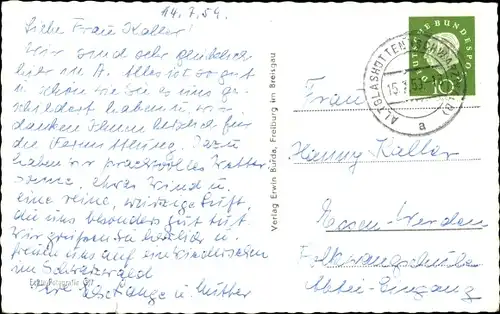 14.7.59.
Liebe Frau Kaller!
Wir sind sehr glücklich
hier in A. Alles ist so gut
u. schön wie Sie es uns ge-
schildert haben u. wir
danken Ihnen herzlich für
die Vermittlung. Dazu
haben wir prachtvolles Wetter
Sonne, etwas Wind u.
eine reine, würzige Luft,
die uns besonders gut tut.
Wir grüßen Sie herzlich u.
freuen uns auf ein Wiedersehen
im Schwarzwald
Ihre u. Mutter
Verlag Erwin Burda, Freiburg im Breisgau
DEUTSCHE BUNDESPOST
10
ALTGLASHÜTTEN (SCHWARZW)
15.7.59
a
Frau
Hanny Kaller
Essen-Werden
Folkwangschule
Abtei-Eingang